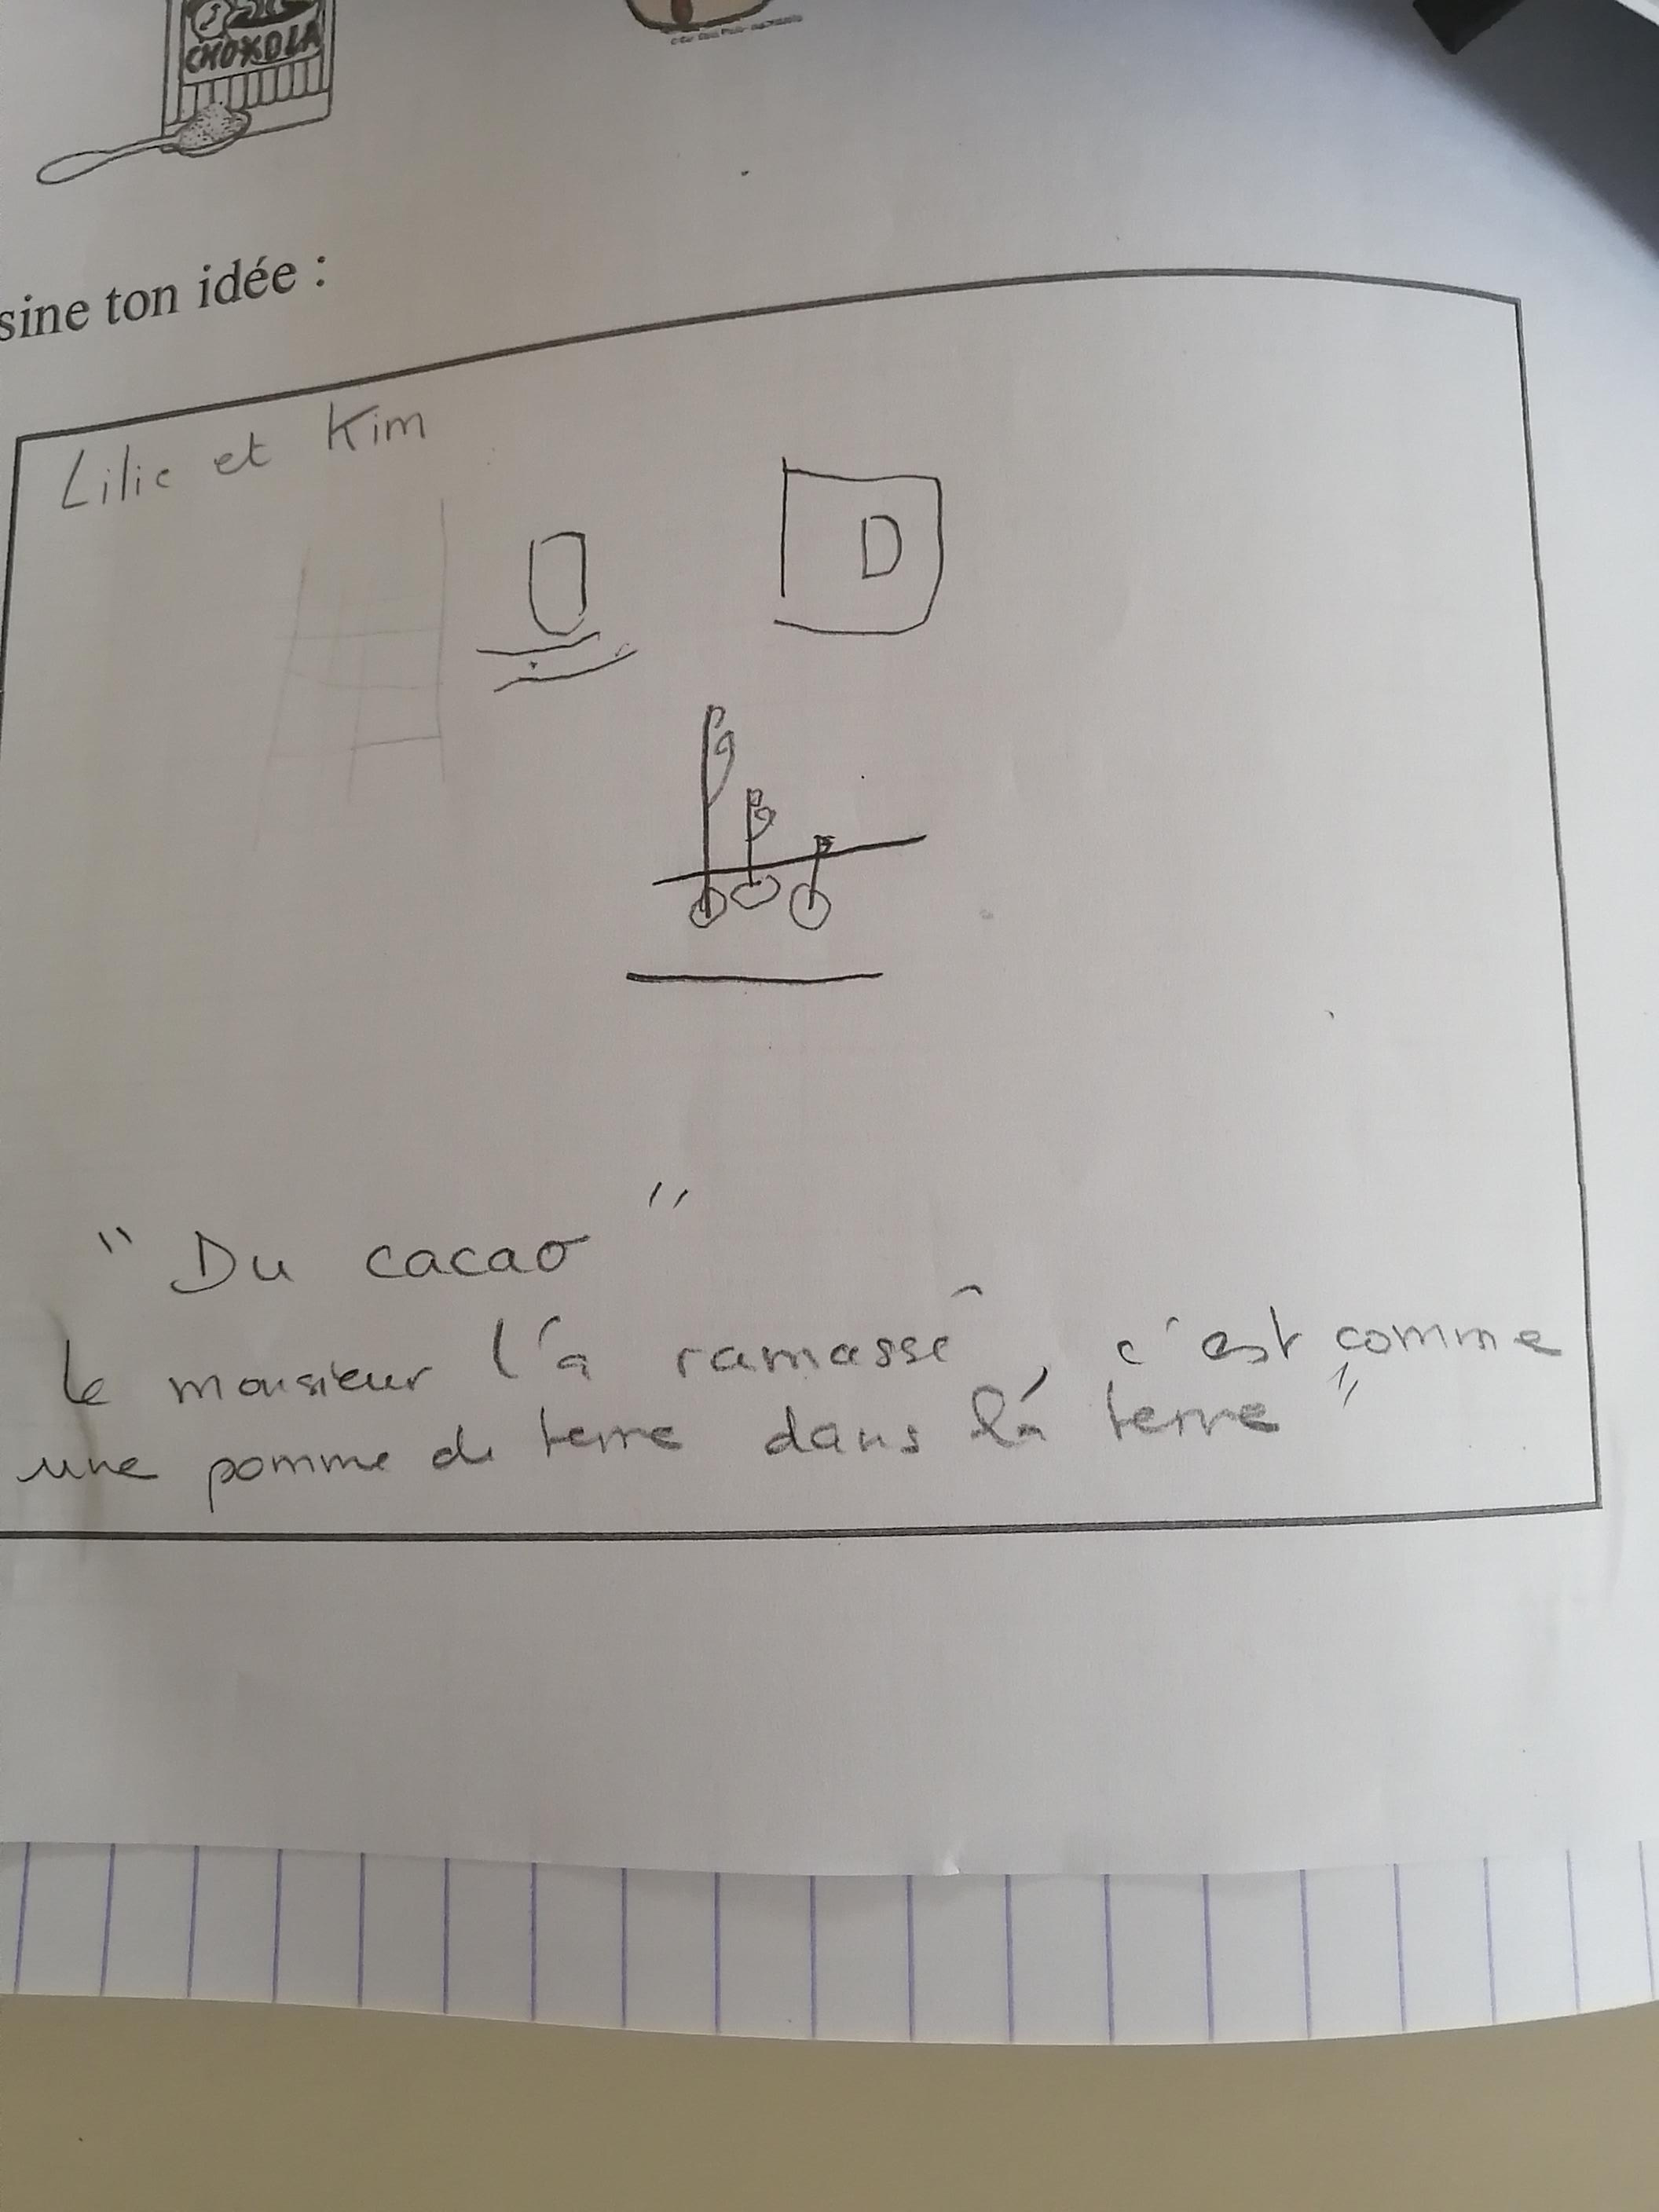 CHOKOLA
sine ton idée :
Lilie et Kim
D
" Du cacao "
Le monsieur l'a ramassé, c'est comme
une pomme de terre dans la terre "